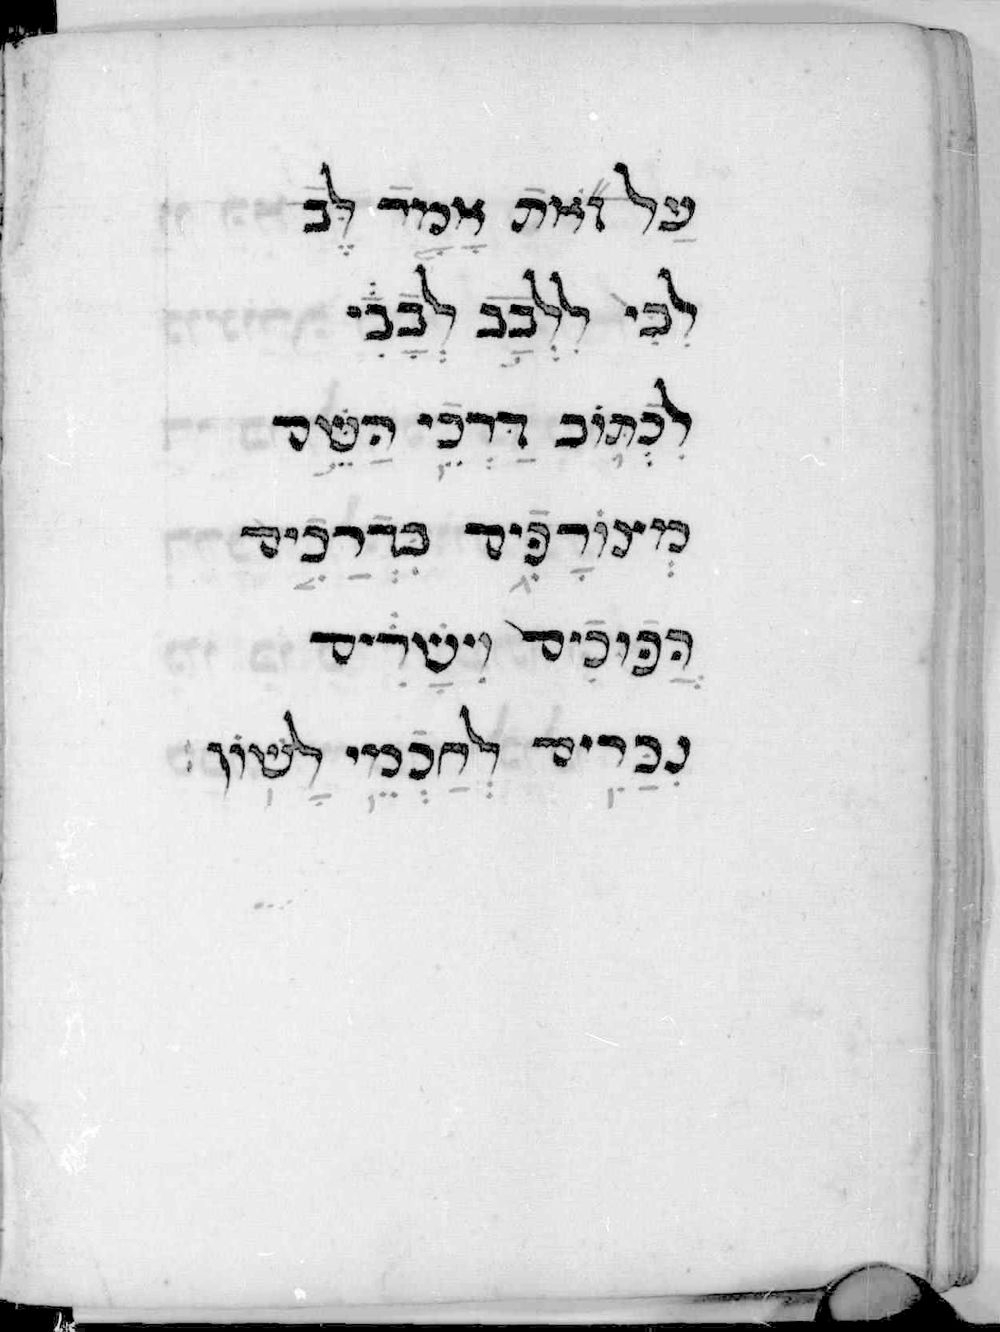 עַל זֹאת אָמַר לֵב
לִבִּי לְלַבֵּב לְבָבִי
לִכְתּוֹב דַּרְכֵי הַשֵּׁם
מְצוֹרָפִים בִּדְרָכִים
הֲפוּכִים וִישָׁרִים
נִכָּרִים לְחַכְמֵי לָשׁוֹן׃